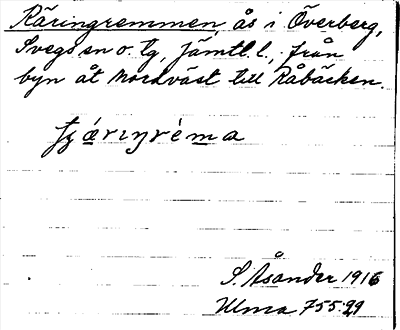 Käringremmen, ås i Överberg,
Svegs sn o. tg, Jämtl. l., från
byn åt nordväst till Råbäcken.
S. Åsander 1916
Ulma 755:29